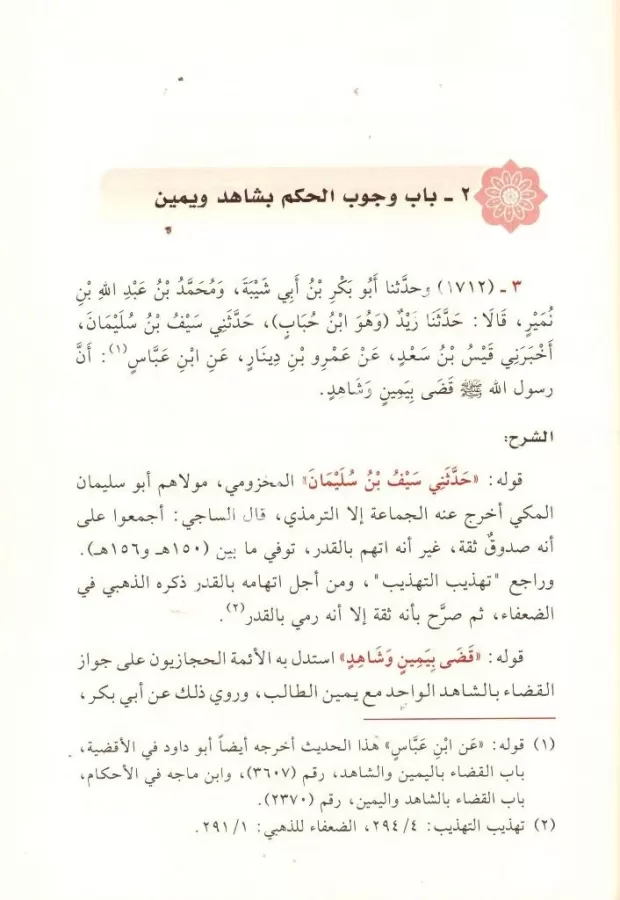 ٢ - باب وجوب الحكم بشاهد ويمين
٣ - (١٧١٢) وحدَّثنا أَبُو بَكْرِ بْنُ أَبِي شَيْبَةَ، وَمُحَمَّدُ بْنُ عَبْدِ اللهِ بْنِ
نُمَيْرٍ، قَالَا: حَدَّثَنَا زَيْدٌ (وَهُوَ ابْنُ حُبَابٍ)، حَدَّثَنِي سَيْفُ بْنُ سُلَيْمَانَ،
أَخْبَرَنِي قَيْسُ بْنُ سَعْدٍ، عَنْ عَمْرِو بْنِ دِينَارٍ، عَنِ ابْنِ عَبَّاسٍ(١): أَنَّ
رسول الله ﷺ قَضَى بِيَمِينٍ وَشَاهِدٍ.
الشرح:
قوله: «حَدَّثَنِي سَيْفُ بْنُ سُلَيْمَانَ» المخزومي، مولاهم أبو سليمان
المكي أخرج عنه الجماعة إلا الترمذي، قال الساجي: أجمعوا على
أنه صدوقٌ ثقة، غير أنه اتهم بالقدر، توفي ما بين (١٥٠هـ و١٥٦هـ).
وراجع "تهذيب التهذيب"، ومن أجل اتهامه بالقدر ذكره الذهبي في
الضعفاء، ثم صرَّح بأنه ثقة إلا أنه رمي بالقدر(٢).
قوله: «قَضَى بِيَمِينٍ وَشَاهِدٍ» استدل به الأئمة الحجازيون على جواز
القضاء بالشاهد الواحد مع يمين الطالب، وروي ذلك عن أبي بكر،
(١) قوله: «عَن ابْنِ عَبَّاسٍ» هذا الحديث أخرجه أيضاً أبو داود في الأقضية،
باب القضاء باليمين والشاهد، رقم (٣٦٠٧)، وابن ماجه في الأحكام،
باب القضاء بالشاهد واليمين، رقم (٢٣٧٠).
(٢) تهذيب التهذيب: ٢٩٤/٤، الضعفاء للذهبي: ٢٩١/١.